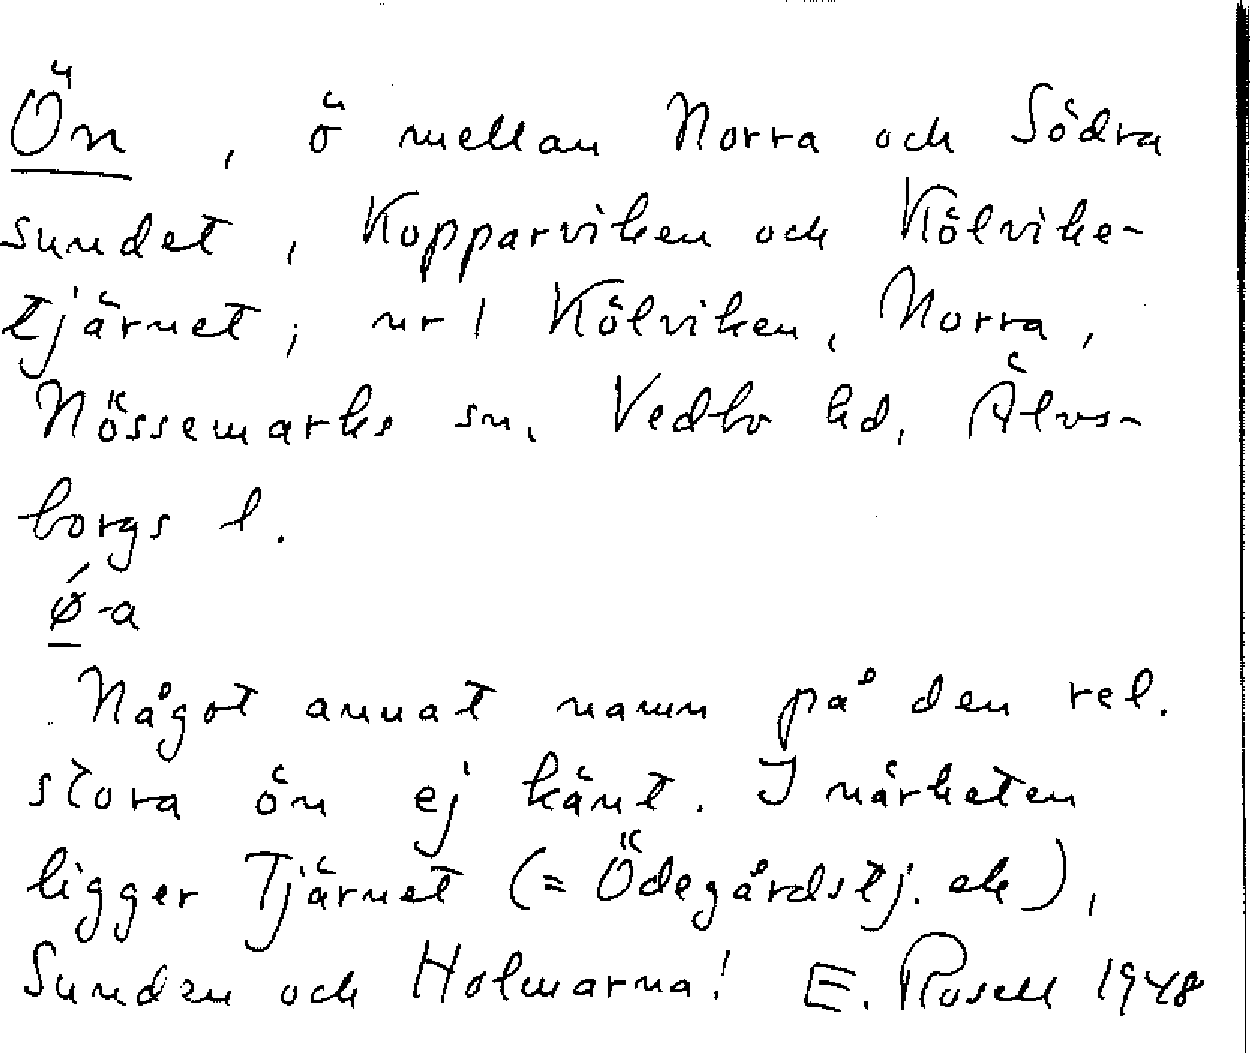 Ön, ö mellan Norra och Södra
sundet, Kopparviken och Kölvike-
tjärnet; nr 1 Kölviken, Norra,
Nössemarks sn. Vedbo hd, Älvs-
borgs l.
ǿ-a
Något annat namn på den rel.
stora ön ej känt. I närheten
ligger Tjärnet (= Ödegårdstj. ek),
Sunden och Holmarna! E. Rosell 1948